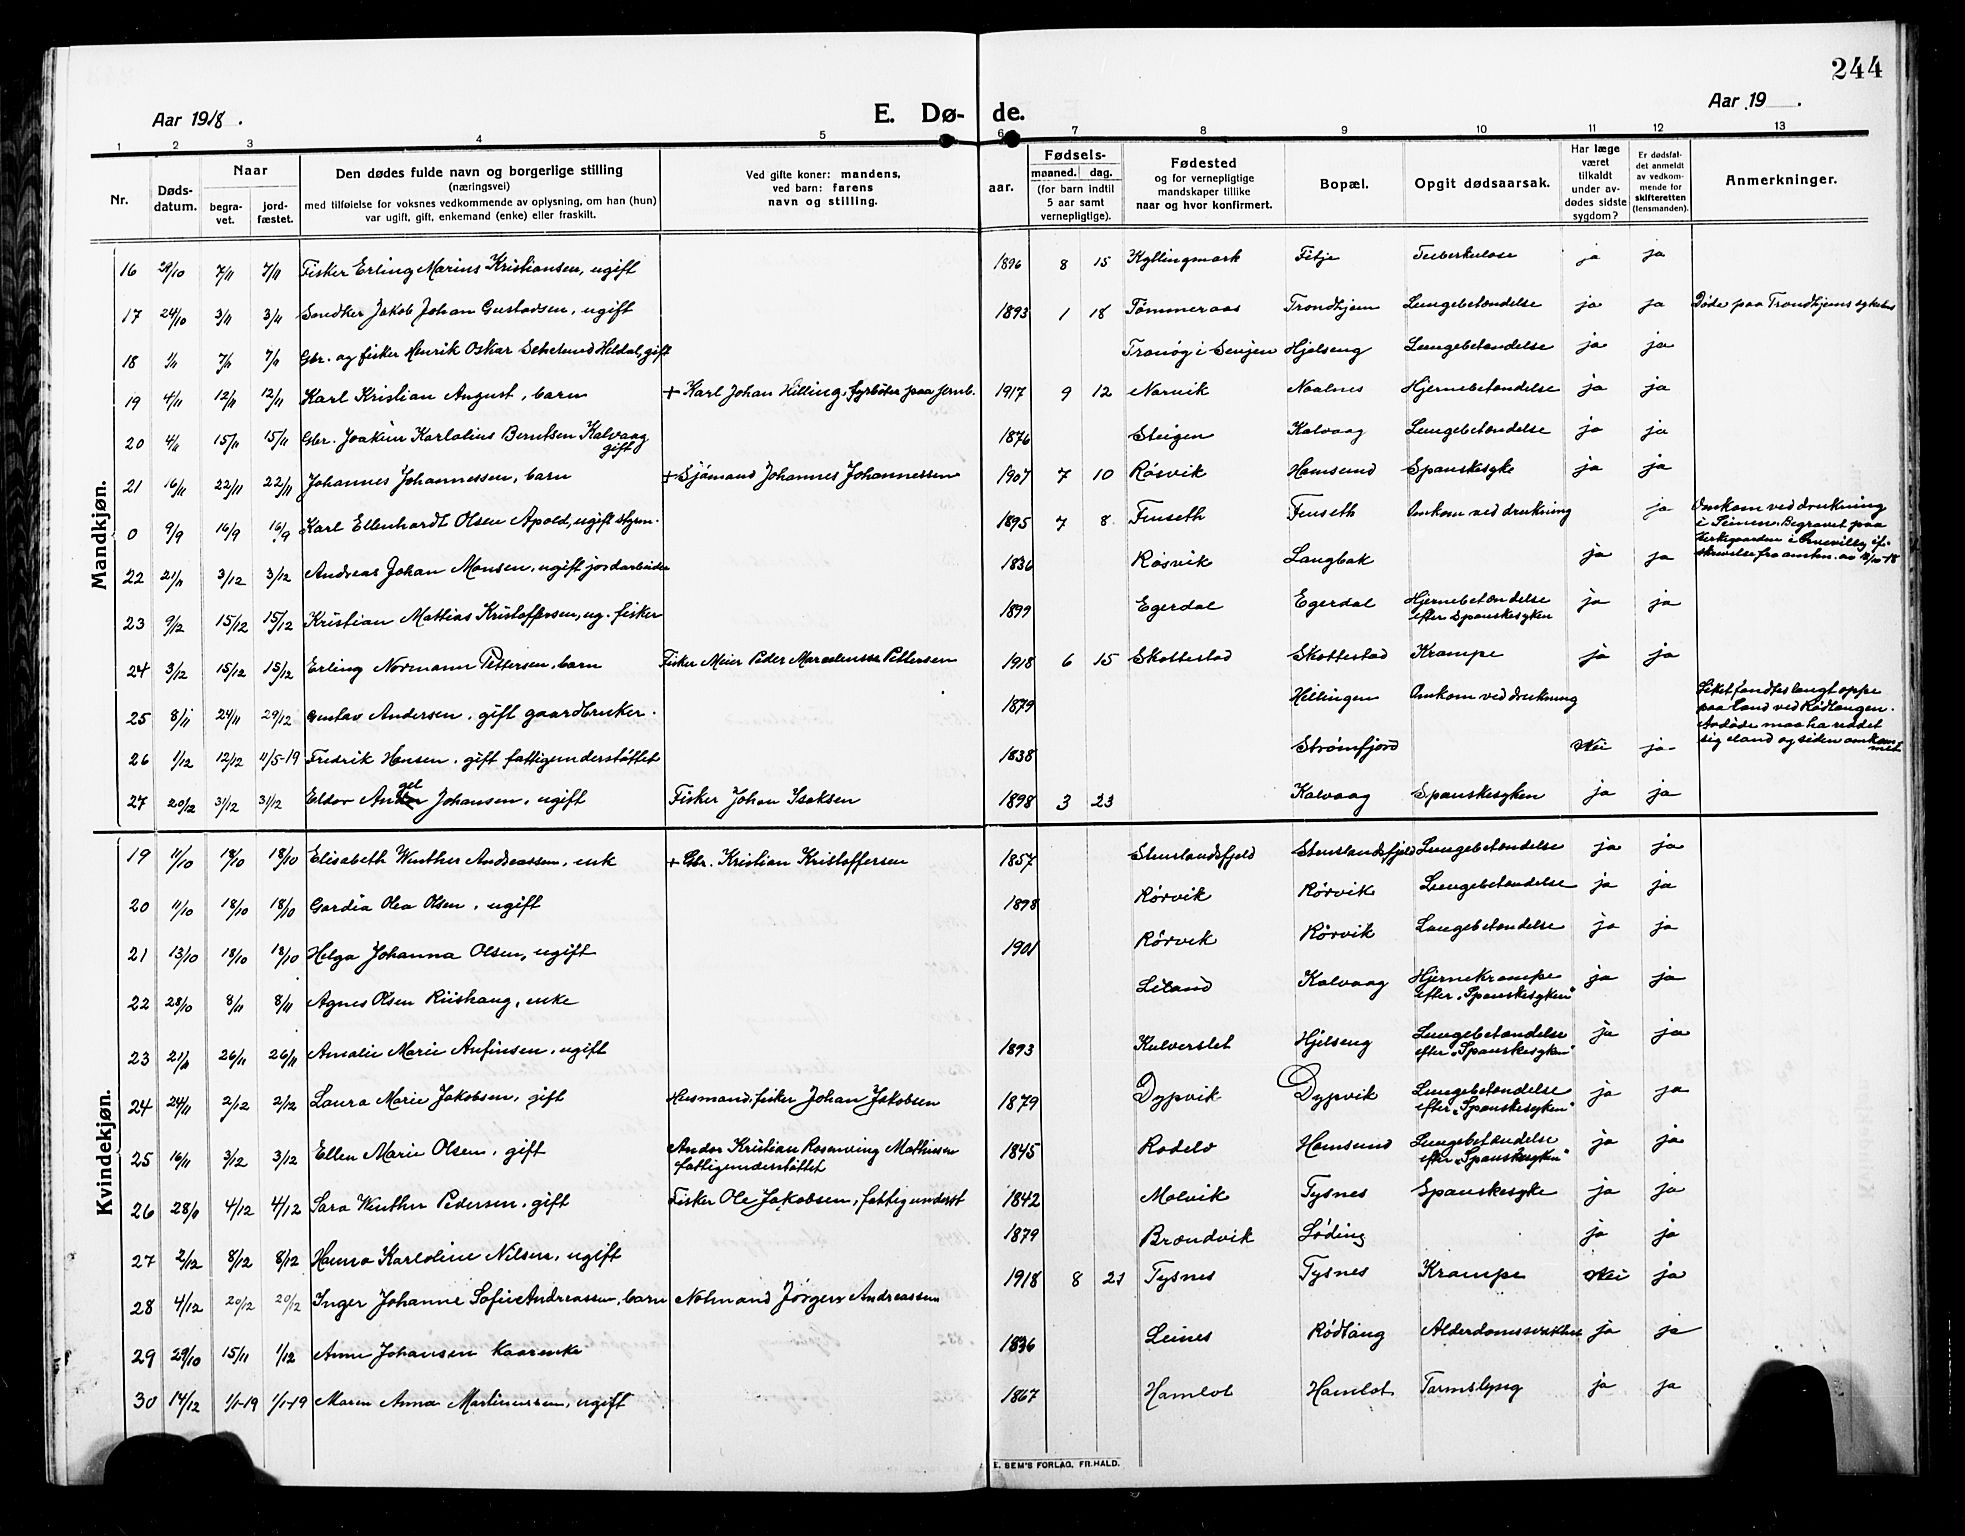 244
Aar 1918.
E. Dø- de.
Aar 19 .
1 2 3 4 5 6 7 8 9 10 11 12 13
Nr.
Døds-
datum.
Naar
begra-
vet.
jord-
fæstet.
Den dødes fulde navn og borgerlige stilling
(næringsvei)
med tilføielse for voksnes vedkommende av oplysning, om han (hun)
var ugift, gift, enkemand (enke) eller fraskilt.
Ved gifte koner: mandens,
ved barn: farens
navn og stilling.
Fødsels-
aar.
maaned. dag.
(for barn indtil
5 aar samt
vernepligtige).
Fødested
og for vernepligtige
mandskaper tillike
naar og hvor konfirmert.
Bopæl.
Opgit dødsaarsak.
Har læge
været
tilkaldt
under av-
dødes sidste
sygdom?
Er dødsfal-
det anmeldt
av vedkom-
mende for
skifteretten
(lensmanden).
Anmerkninger.
Mandkjøn.
16 29/10 7/11 7/11 Fisker Erling Marius Kristiansen, ugift 1896 8 15 Kyllingmark Fitje Tuberkulose ja ja
17 24/10 3/11 3/11 Snedker Jakob Johan Gustavsen, ugift 1893 1 18 Tømmeraas Trondhjem Lungebetændelse ja ja Døde paa Trondhjems sykehus
18 1/11 7/11 7/11 Gbr. og fisker Henrik Oskar Heldal, gift Tranøy i Senjen Hjelseng Lungebetændelse ja ja
19 4/11 12/11 12/11 Karl Kristian August, barn + Karl Johan Hilling, fyrbøter paa jernb. 1917 9 12 Narvik Naalnes Hjernebetændelse ja ja
20 4/11 15/11 15/11 Gbr. Joakim Karlotius Berntsen Kalvaag
gift 1876 Steigen Kalvaag Lungebetændelse ja ja
21 16/11 22/11 22/11 Johannes Johannessen, barn + Sjømand Johannes Johannessen 1907 7 10 Røsvik Hamsund Spanskesyke ja ja
0 9/9 16/9 16/9 Karl Ellenhardt Olsen Apold, ugift styrm. 1895 7 8 Finseth Finseth Omkom ved drukning ja Omkom ved drukning
i Seinen. Begravet paa
kirkegaarden i
skrivelse fra amtm. av
22 21/11 3/12 3/12 Andreas Johan Monsen, ugift jordarbeider 1836 Røsvik Langbak ja ja
23 9/12 15/12 15/12 Kristian Mathias Kristoffersen, ug. fisker 1899 Egerdal Egerdal Hjernebetændelse
efter Spanskesyken ja ja
24 3/12 15/12 15/12 Erling Normann Pettersen, barn Fisker Meier Peder Pettersen 1918 6 15 Skottestad Skottestad Krampe ja ja
25 8/11 24/11 29/12 Gustav Andersen, gift gaardbruker. 1879 Hillingen Omkom ved drukning Liket fandtes langt oppe
paa land ved Rødtangen.
Avdøde maa ha reddet
sig iland og siden omkom-
met
26 1/12 12/12 11/5-19 Fredrik Hansen, gift fattigunderstøttet 1838 Strømfjord Nei ja
27 20/12 31/12 31/12 Eldor Angel Johansen, ugift Fisker Johan Isaksen 1898 3 23 Kalvaag Spanskesyken ja ja
Kvindekjøn.
19 11/10 18/10 18/10 Elisabeth Winther Andreassen, enk + Gbr. Kristian Kristoffersen 1857 Stenslandsfjeld Stenslandsfjeld Lungebetændelse ja ja
20 11/10 18/10 18/10 Gardia Olea Olsen, ugift 1898 Rørvik Rørvik Lungebetændelse ja ja
21 13/10 18/10 18/10 Helga Johanna Olsen, ugift 1901 Rørvik Rørvik Lungebetændelse ja ja
22 28/10 8/11 8/11 Agnes Olsen Riishaug, enke Liland Kalvaag Hjernekrampe
efter „Spanskesyken" ja ja
23 21/11 26/11 26/11 Amalie Marie Anfinsen, ugift 1893 Kulverslet Hjelseng Lungebetændelse
efter „Spanskesyken" ja ja
24 24/11 2/12 2/12 Laura Marie Jakobsen, gift Husmand, fisker Johan Jakobsen 1879 Dypvik Dypvik Lungebetændelse
efter „Spanskesyken" ja ja
25 16/11 3/12 3/12 Ellen Marie Olsen, gift Andor Kristian Rosenving Mathisen
fattigunderstøttet 1845 Rodelv Hamsund Lungebetændelse
efter „Spanskesyken" ja ja
26 28/11 4/12 4/12 Sara Winther Pedersen, gift Fisker Ole Jakobsen, fattigunderst 1842 Molvik Tysnes Spanskesyke ja ja
27 2/12 8/12 8/12 Hanna Karloline Nilsen, ugift 1879 Brændvik Løding ja ja
28 4/12 20/12 20/12 Inger Johanne Sofie Andreassen, barn Notmand Jørgen Andreassen 1918 8 21 Tysnes Tysnes Krampe Nei ja
29 29/10 15/11 1/12 Anne Johansen kaarenke 1836 Leines Rødtang Alderdomssvakhet ja ja
30 14/12 1/1-19 1/1-19 Maren Anna Martinussen, ugift 1867 Hamlot Hamlot Tarmslyng ja ja
E. SEM'S FORLAG, FR.HALD.